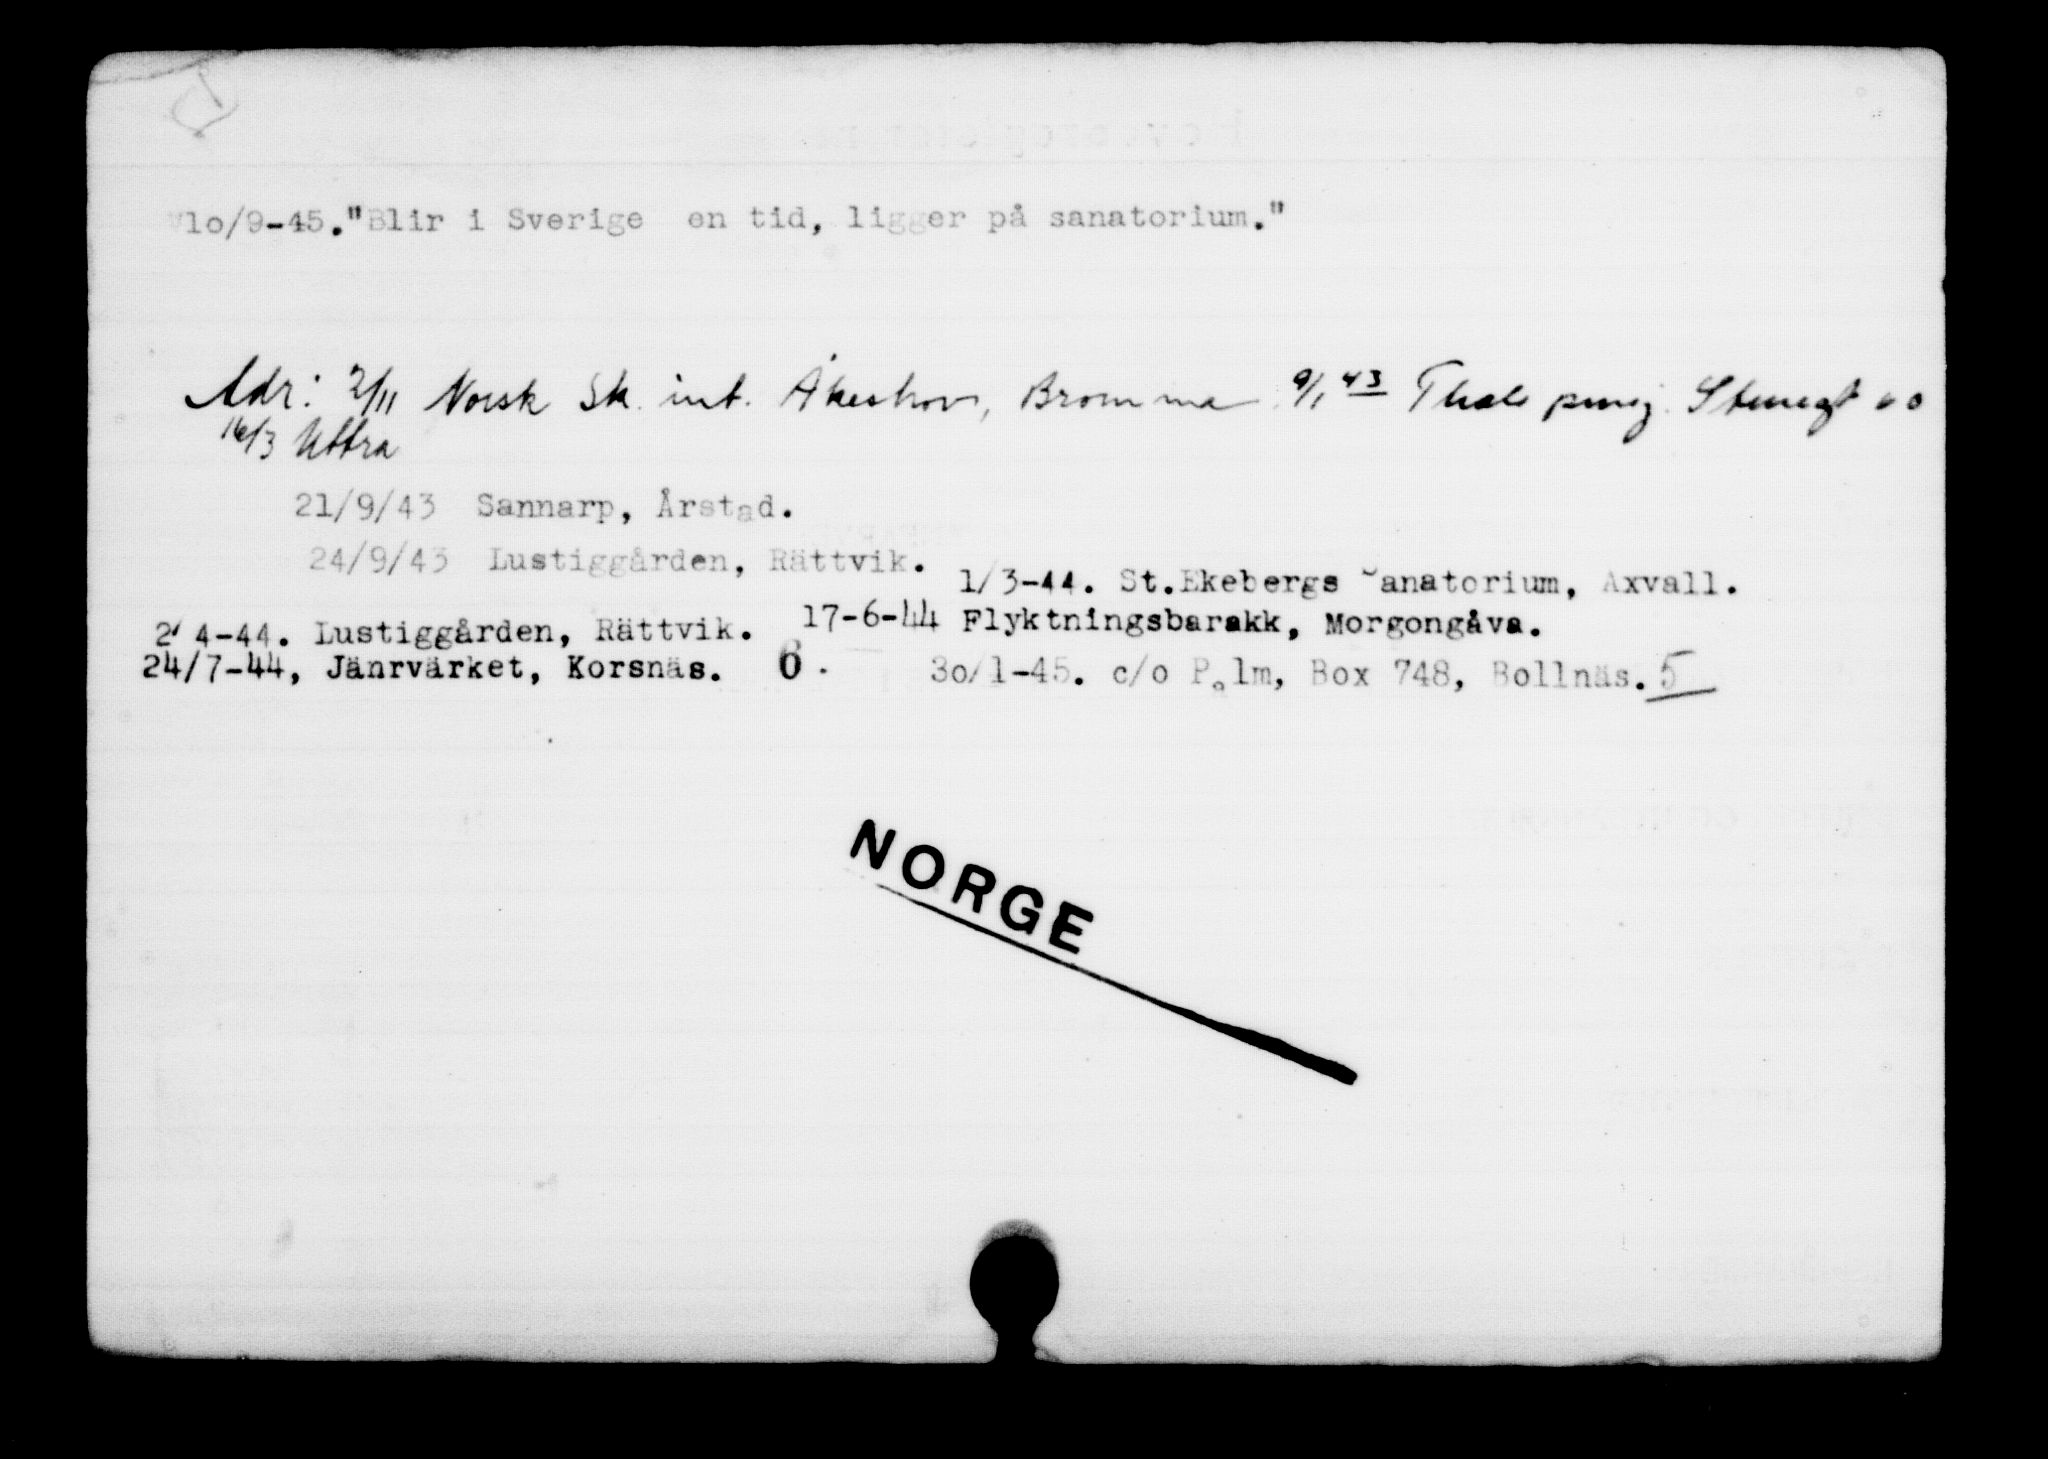 10/9-45."Blir i Sverige en tid, ligger på sanatorium."
Adr: 2/11 Norsk Sk. int. Åkeshov, Bromma 9/1 43 Thals pensj.
16/3 Uttra
21/9/43 Sannarp, Årstad.
24/9/43 Lustiggården, Rättvik.
1/3-44. St.Ekebergs anatorium, Axvall.
2/4-44. Lustiggården, Rättvik. 17-6-44 Flyktningsbarakk, Morgongåva.
24/7-44, Jänrvärket, Korsnäs. 6. 3o/1-45. c/o Palm, Box 748, Bollnäs. 5
NORGE